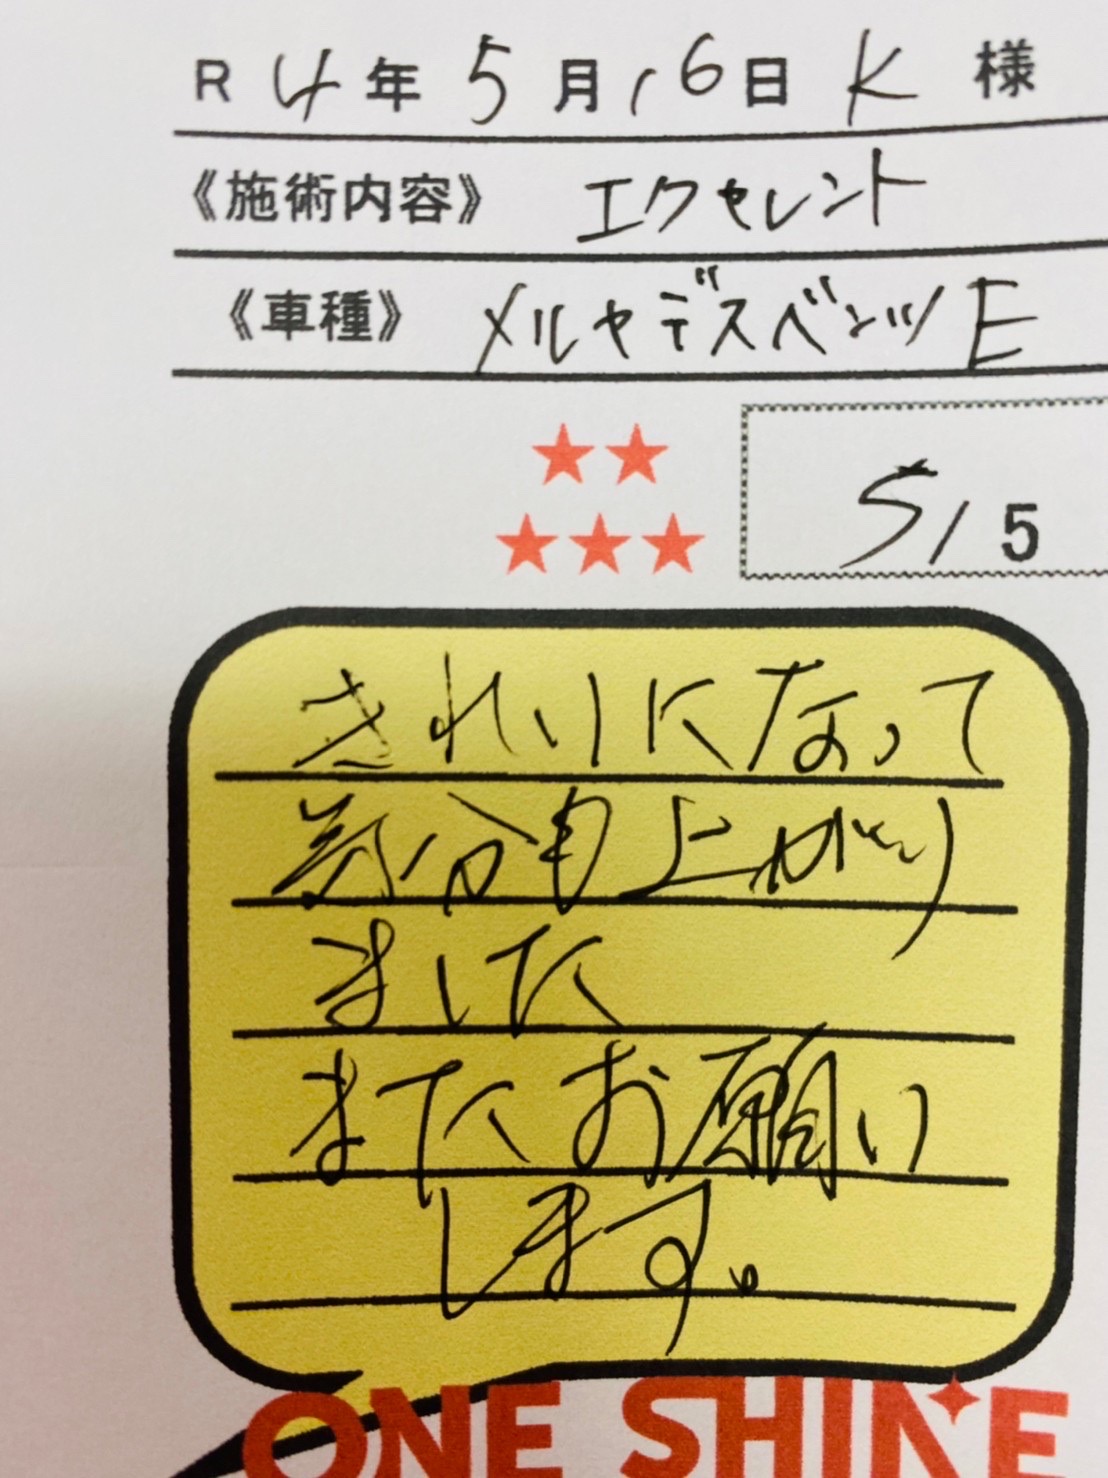 R 4年 5月16日 K 様
《施術内容》 エクセレント
《車種》 メルセデスベンツE
★★
★★★
5/5
きれいになって
気分も上がり
ました
またお願い
します。
ONE SHINE